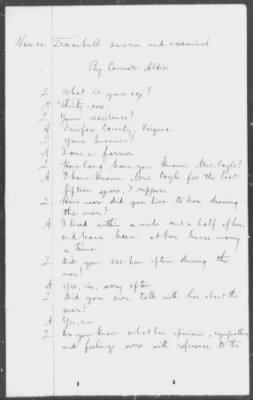 Trumbull sworn and examined
By Comr. Aldis
Q What is your age?
A Thirty-six.
Q Your residence?
A Fairfax County, Virginia.
Q Your business?
A I am a farmer.
Q How long have you known Mrs. Coyle?
A I have known Mrs. Coyle for the last
fifteen years, I suppose.
Q How near did you live to her during
the war?
A I lived within a mile and a half of her,
and have been at her house many
a time.
Q Did you see her often during the
war?
A Yes, sir, very often.
Q Did you ever talk with her about the
war?
A Yes, sir.
Q Do you know what her opinions, sympathies
and feelings were with reference to the